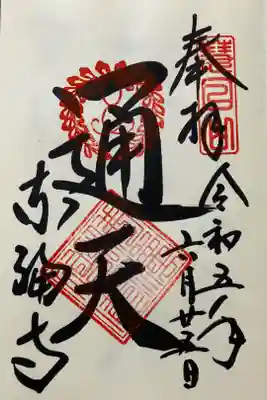 慧日山
奉拝 令和五年
六月廿五日
通天
東福寺